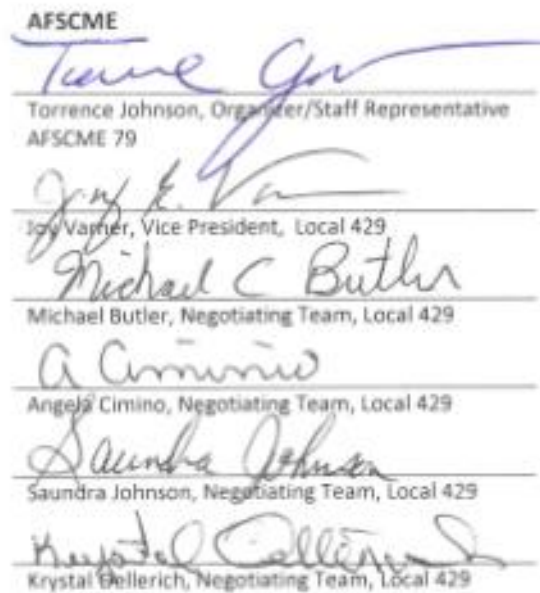 AFSCME
Torrence Johnson, Organizer/Staff Representative
AFSCME 79
Joy Varner, Vice President, Local 429
Michael C Butler
Michael Butler, Negotiating Team, Local 429
A Cimino
Angela Cimino, Negotiating Team, Local 429
Saundra Johnson
Saundra Johnson, Negotiating Team, Local 429
Krystal Dellerich, Negotiating Team, Local 429